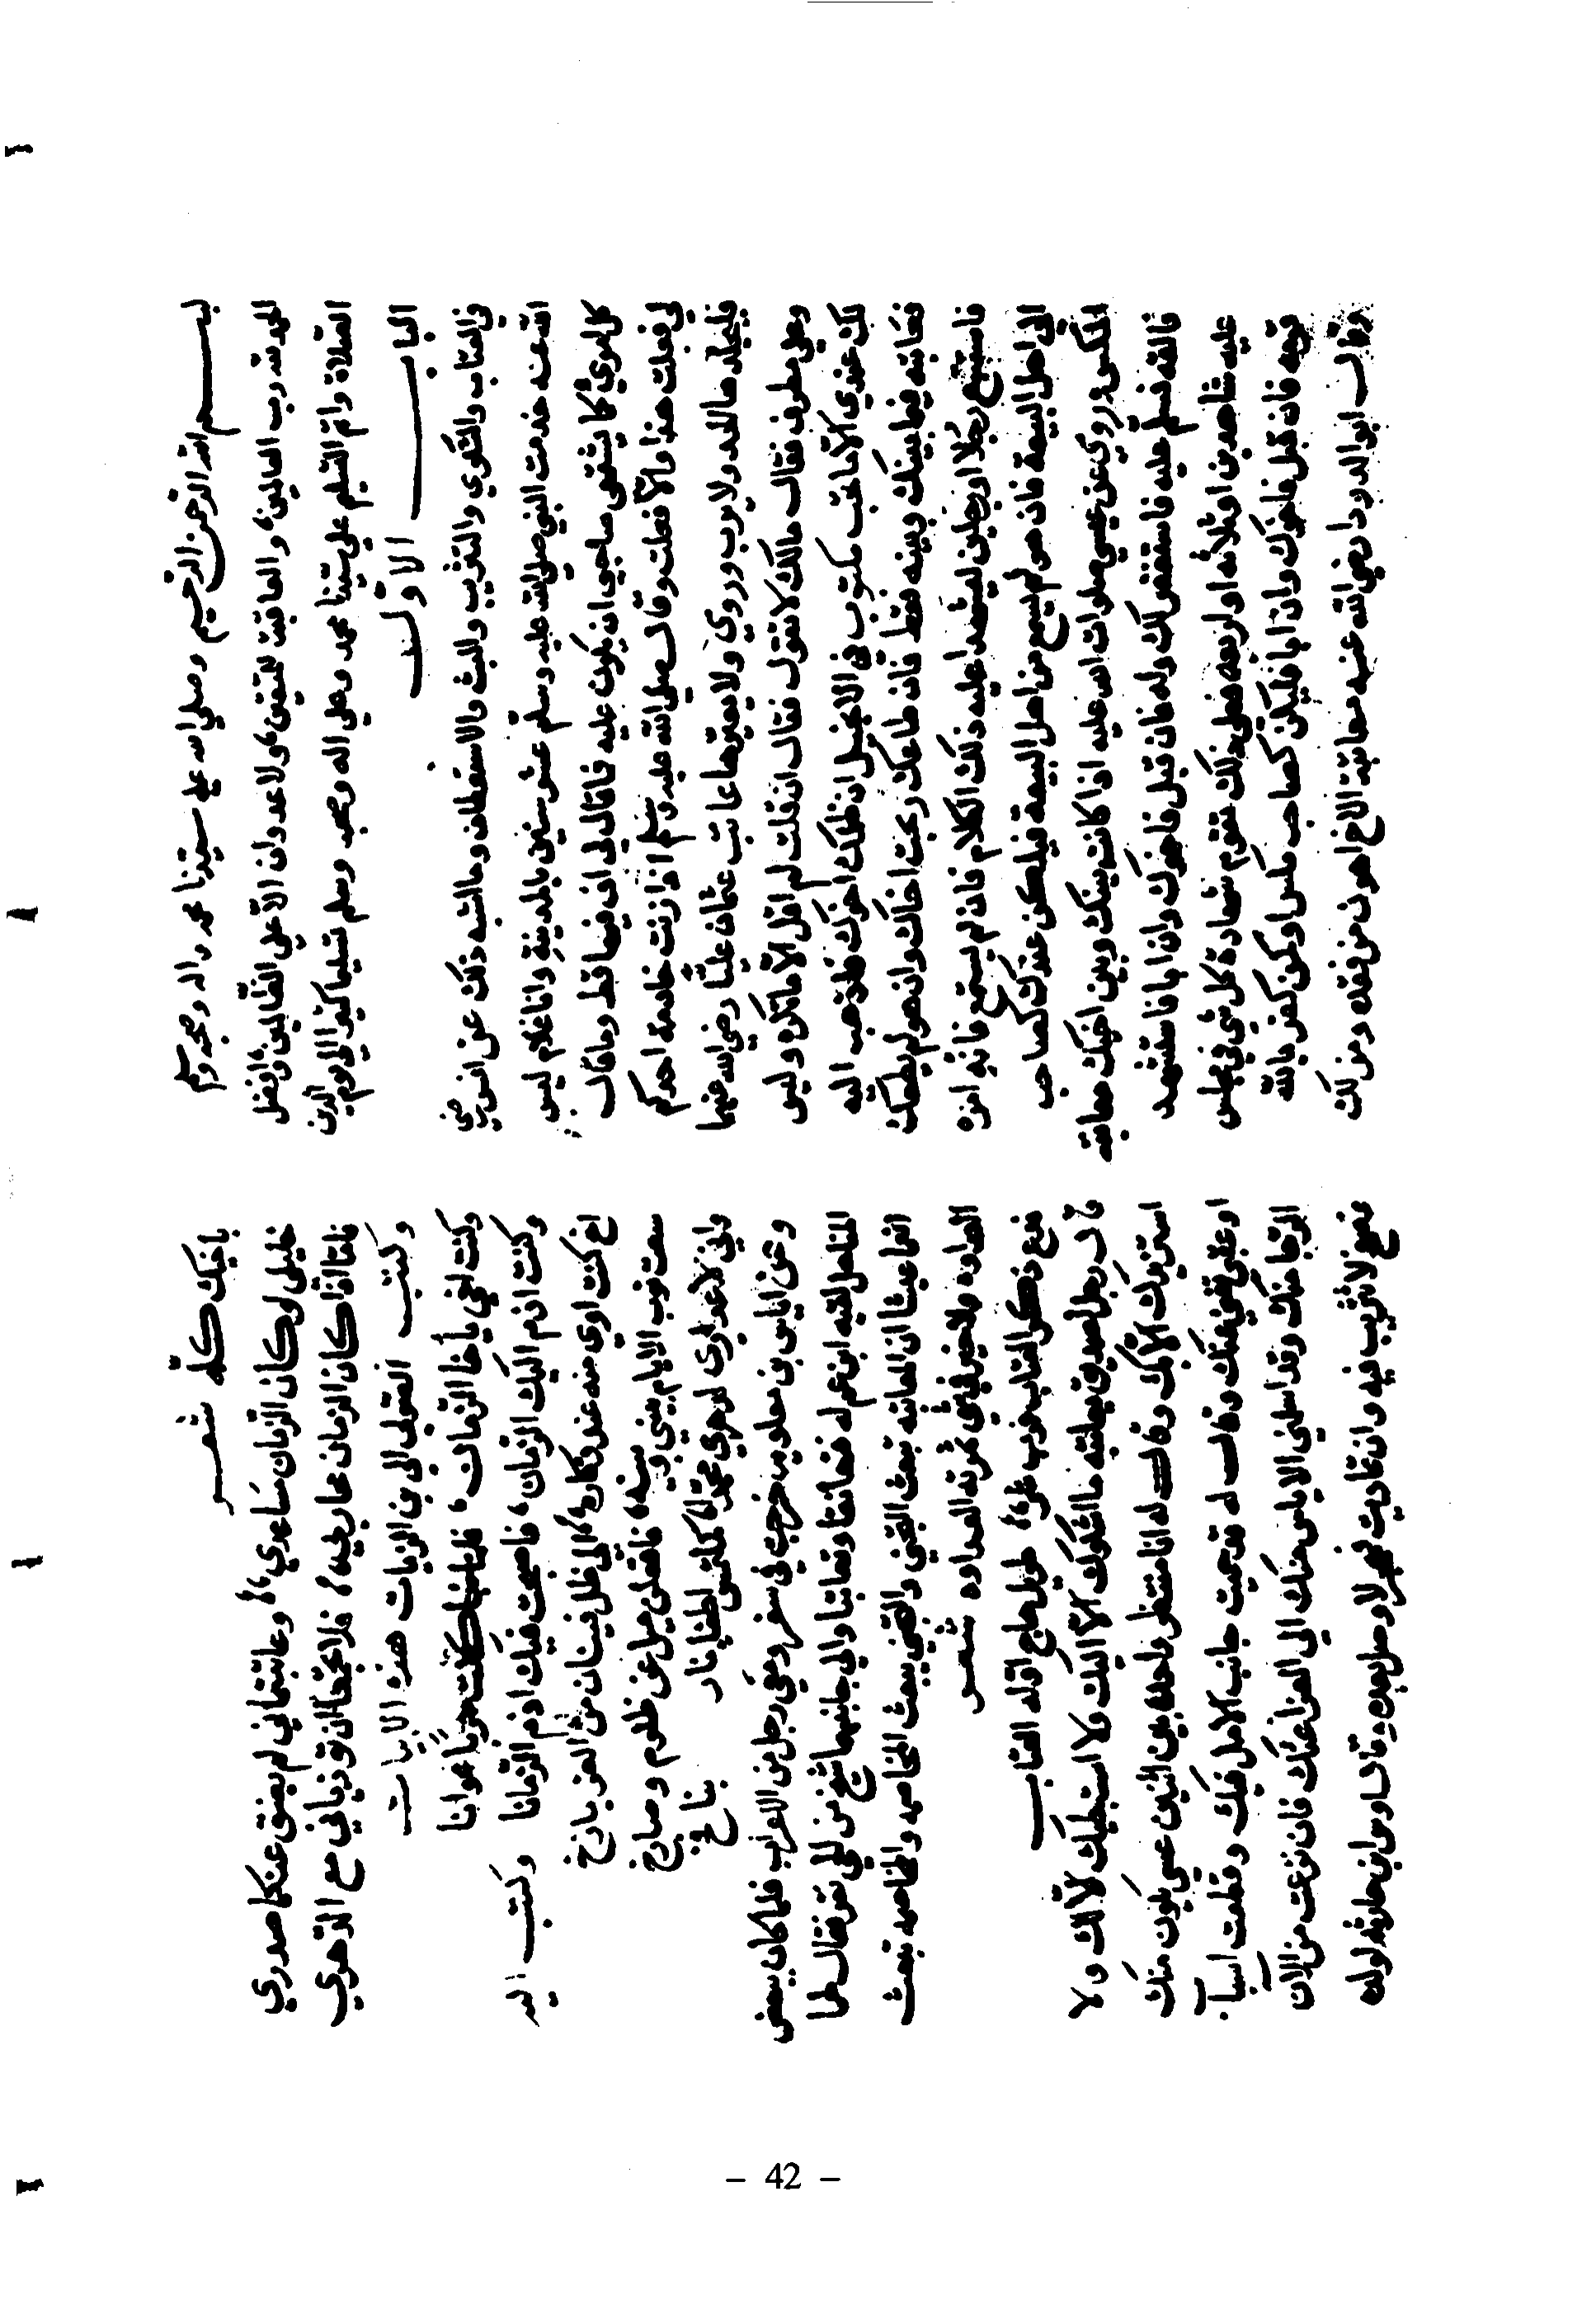 بسم الله الرحمن الرحيم وصلي الله علي سيدنا محمد واله وصحبه وسلم
الحمد لله رب العالمين، والعاقبة للمتقين، ولا عدوان الا علي الظالمين، وافضل
الصلاة واتم التسليم علي سيدنا محمد وعلي اله وصحبه وسلم تسليما كثيرا الي يوم الدين
الباب الاول
في العتاب والشكوي والتثريب والبث والاستعطاف وما اشبه ذلك عن انس رضي
الله عنه خدمت النبي صلي الله عليه وسلم عشر سنين بالمدينة وانا غلام ليس
كل امري كما يشتهي صاحبي ان يكون عليه فما قال لي اف فيها قط وما قال
لي فعلت هذا والا فعلت وقال صلي الله عليه وسلم اذا زنت خادمة احدكم
فليجلدها الحد ولا يثرب وروي ولا يعيرها عاتب عثمان عليا رضي الله عنهما
وعلي مطرف فقال مالك لا تقول فقال ان قلت لم اقل الا ما تكره وليس
لك عندي الا ما تحب مكتوب في الانجيل ان ظلمك اخوك فاذهب اليه
فعاتبه فيما بينك وبينه فقط فان اطاعك ربحت اخاك وان هو لم يطعك
فاستتبع رجلا او رجلين ليشهدا عليه ذلك الكلام فان لم يستمع فانه امره
الي اهل البيعة فان هو لم يسمع من اهل البيعة فيلكن عندك كصاحب
المكس وروي عن عيسي صلوات الله عليه اذا كانت بينك وبين اخيك معاتبة
فالقه فسلم عليه فاستغفر لك وله فان قبل فاخوك وان ابا فاستشهد
عليه شاهدين او ثلاثه او اربعه فعلي ذلك تقوم شهادة كل شي في مجلس
قومه فان قبل فاخوك وان ابا فليكن كصاحب مكس او كمن كفر بالله
وقال ابو الدردا رضي الله عنه معاتبة الاخ اهون من فقده ومن لك
باخيك كله شعر
خليلي لو كان الزمان مساعدي، وعاتبتماني لم يضق عنكما صدري
فاما اذا كان الزمان محاربي، فلا تجمعا ان توذياني مع الدهري
وكتب الصولي الي بن الزيات هذه الابيات
وكنت اخي باخا الزمان، فلما نبا كنت حربا عوانا
وكنت اذم اليك الزمان، فاصبحت فيك اذم الزمانا وكتب اليه
اخ كنت اوي منه عند ادكاره، الي ظل فينان من العز باذخ
سعت نوب الايام بيني وبينه، فاقلعن عن ظلوم وصارخ
واني لاعدادي لدهري محمدا كملتمس اطفا نار بنافخ
وعن اياس بن معاويه خرجت في سفر ومعي رجل من الاعراب فلما كان ببعض
المناهل لقيه ابن عم له فتعانقا وتعاتبا والي جانبهما شيخ من الحي فقال لهما
انعما عيشا ان المعاتبه تبعث التجني والتجني يبعث المخاصمه والمخاصمه تبعث
العداوه ولا خير في شي ثمرته العداوه شعر
فدع ذكر العتاب فرب شر، طويل هاج اوله العتاب
قال رجل لصديق يعاتبه ما اشكوك الا اليك ولا استبطيك الا لك ولا
استزيدك الا بك وقال له انا منتظر واحدة من اثنتين عسي يكون منك
او عقبي تغني عنك وقال له قد حميت جانب الامل فيك وقطعت اسباب
الرجا منك وقد اسلمني الاياس منك الي العزا عنك فان نزعت من الان
فصفح لا تثريب فيه وان تماديت فهجر لا وصل بعده وقال اوس ابن حارثه لولده
- 42 -